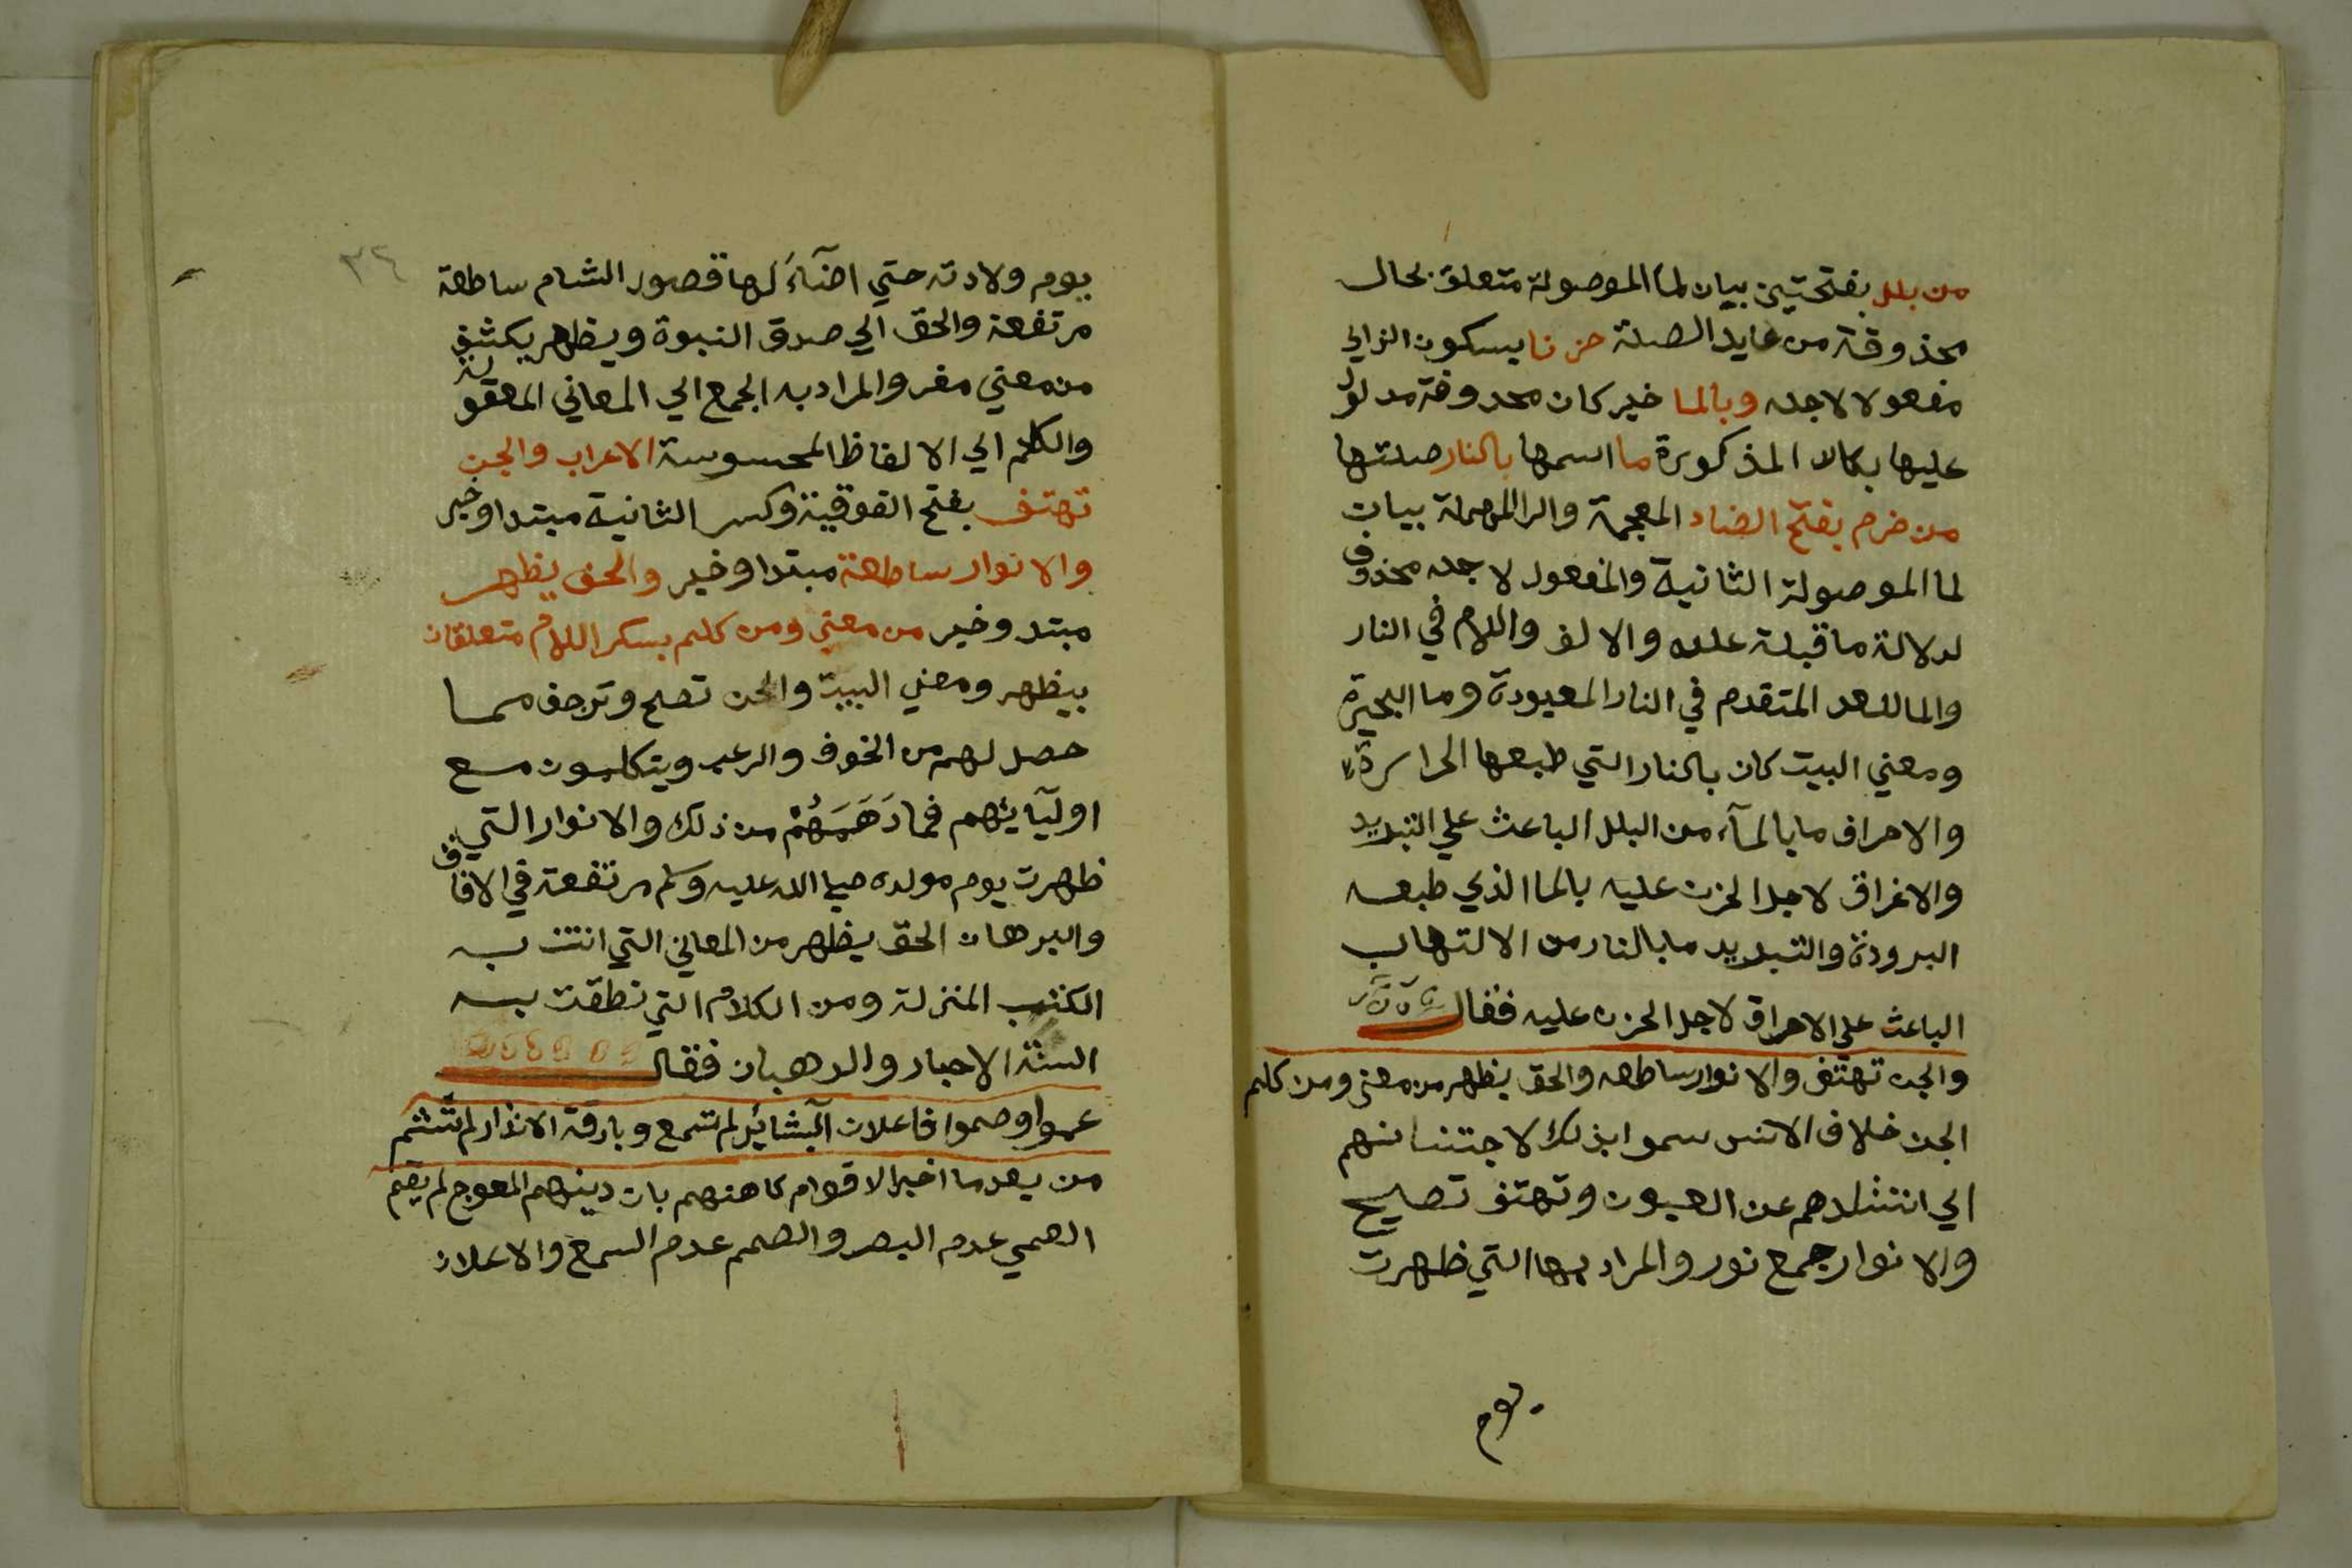 من بلل بفتحتين بيان لما الموصولة متعلق بحال
محذوفة من عايد الصلة حزنا بسكون الزاي
مفعولا لاجله وبالما خبر كان محذوفة مدلول
عليها بكان المذكورة ما اسمها بالنار صلتها
من ضرم بفتح الضاد المعجمة والرا المهملة بيان
لما الموصولة الثانية والمفعول لاجله محذوف
لدلالة ما قبله عليه والالف واللام في النار
والما للعهد المتقدم في النار المعبودة وما البحيرة
ومعني البيت كان بالنار التي طبعها الحرارة
والاحراق ما بالمآء من البلل الباعث علي التبريد
والاغراق لاجل الحزن عليه بالما الذي طبعه
البرودة والتبريد ما بالنار من الالتهاب
الباعث علي الاحراق لاجل الحزن عليه فقال
والجن تهتف والانوار ساطعه والحق يظهر من معني ومن كلم
الجن خلاف الانس سموا بذلك لاجتنانهم
الي استتارهم عن العيون وتهتف تصيح
والانوار جمع نور والمراد بها التي ظهرت
يوم
٣٤
يوم ولادته حتي اضآءَ لها قصور الشام ساطعة
مرتفعة والحق الي صدق النبوة ويظهر يكشف
من معني مفر والمراد به الجمع الي المعاني المعقولة
والكلم الي الالفاظ المحسوسة الاعراب والجن
تهتف بفتح الفوقية وكسر الثانية مبتدا وخبر
والانوار ساطعة مبتدا وخبر والحق يظهر
مبتد وخبر من معني ومن كلم بسكر اللام متعلقان
بيظهر ومعني البيت والجن تصح وترجف مما
حصل لهم من الخوف والرعب ويتكلمون مع
اوليآئهم فما دَهَمَهُمْ من ذلك والانوار التي
ظهرت يوم مولده صلي الله عليه وسلم مرتفعة في الافاق
والبرهان الحق يظهر من المعاني التي اتت به
الكتب المنزلة ومن الكلام التي نطقت به
السنة الاحبار والرهبان فقال
عموا وصموا فاعلان البشائر لم تسمع وبارقة الانذار لم تشم
من بعد ما اخبر الاقوام كاهنهم بان دينهم المعوج لم يقم
العمي عدم البصر والصمم عدم السمع والاعلان